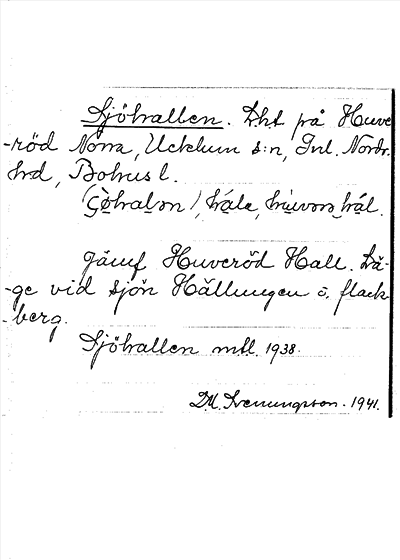 Sjöhallen. Lht på Huve-
-röd Norra, Ucklum s:n, Inl. Nordr.
hd, Bohusl.
hála, hål.
jämf Huveröd Hall. Lä-
-ge vid sjön Hällungen o. flack
-berg.
Sjöhallen mtl. 1938.
D.U. 1941.